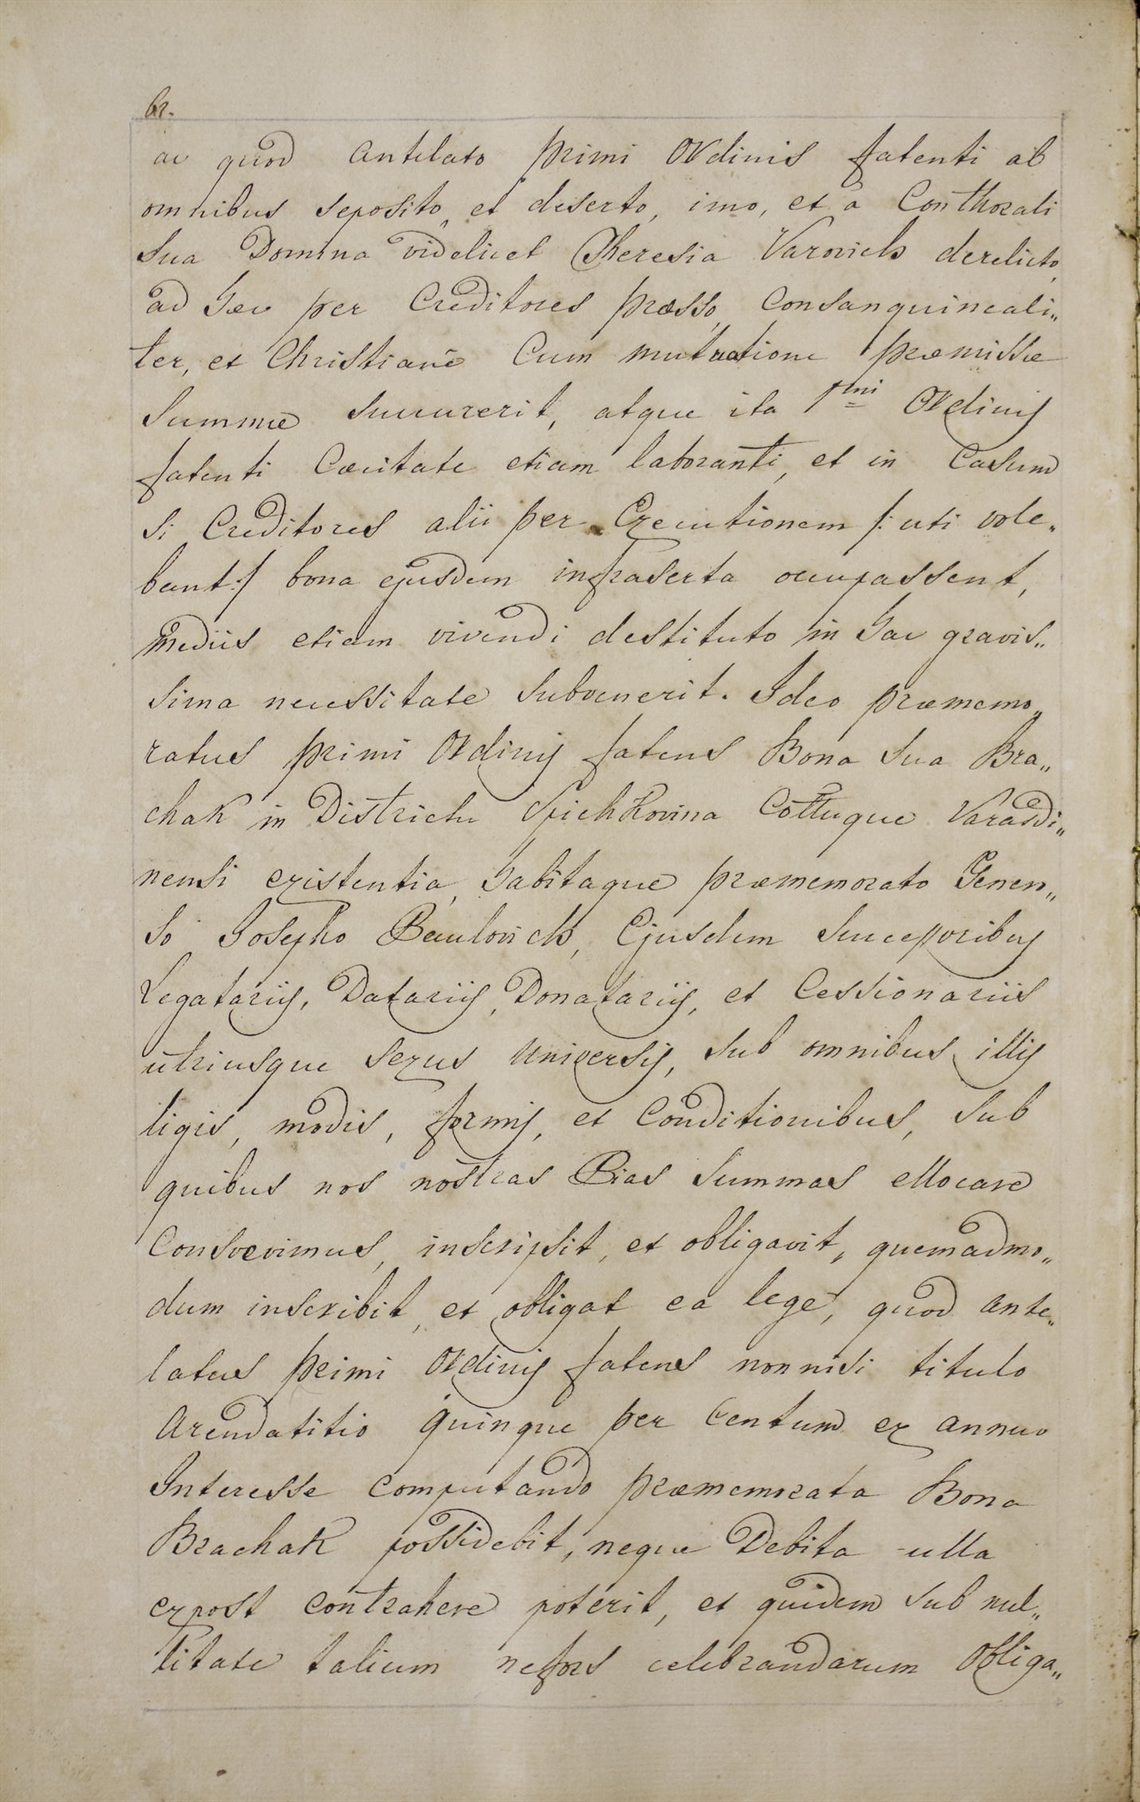 62.
ac quod antelato primi Ordinis fatenti ab
omnibus seposito, et deserto, imo, et a Conthorali
sua Domina videlicet Theresia Varovich derelicto,
ad haec per Creditores presso, Consanquineali„
ter, et Christiane Cum mutuatione praemissae
Summae succurerit, atque ita 1mi Ordinis
fatenti Caecitate etiam laboranti, et in Casum
si Creditores alii per Executionem /: uti vole„
bant :/ bona ejusdem infraserta occupassent,
mediis etiam vivendi destituto in hac gravis„
sima necessitate subvenerit. Ideo praememo„
ratus primi Ordinis fatens Bona sua Bra„
chak in Districtu Cottuque Varasdi„
nensi existentia, habitaque praememorato Genero„
so Josepho Raulovich, Ejusdem Successoribus
Legatariis, Datariis, Donatariis, et Cessionariis
utriusque sexus Universis, sub omnibus illis
ligis, modis, formis, et Conditionibus, sub
quibus nos nostras Pias Summas ellocare
Consvevimus, inscripsit, et obligavit, quemadmo„
dum inscribit, et obligat ea lege, quod ante„
latus primi Ordinis fatens nonnisi titulo
Arendatitio quinque per Centum ex annuo
Interesse computando praememorata Bona
Brachak possidebit, neque Debita ulla
expost contrahere poterit, et quidem sub nul„
litate talium nefors celebrandarum Obliga„